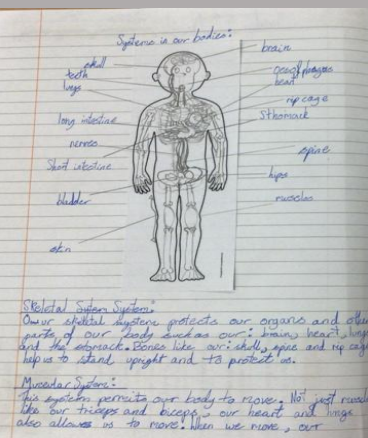 Systems in our bodies:
brain
skull
teeth
oesophagus
lungs
heart
rip cage
long intestine
Sthomack
nerves
spine
Short intestine
hips
bladder
muscles
skin
Skeletal System:
Our skeletal system protects our organs and other
parts of our body such as our: brain, heart, lungs
and the stomack. Bones like our: skull, spine and rip cage
help us to stand upright and to protect us.
Muscular System:
This system permits our body to move. Not just muscles
like our triceps and biceps, our heart and lungs
also allows us to move. When we move, our